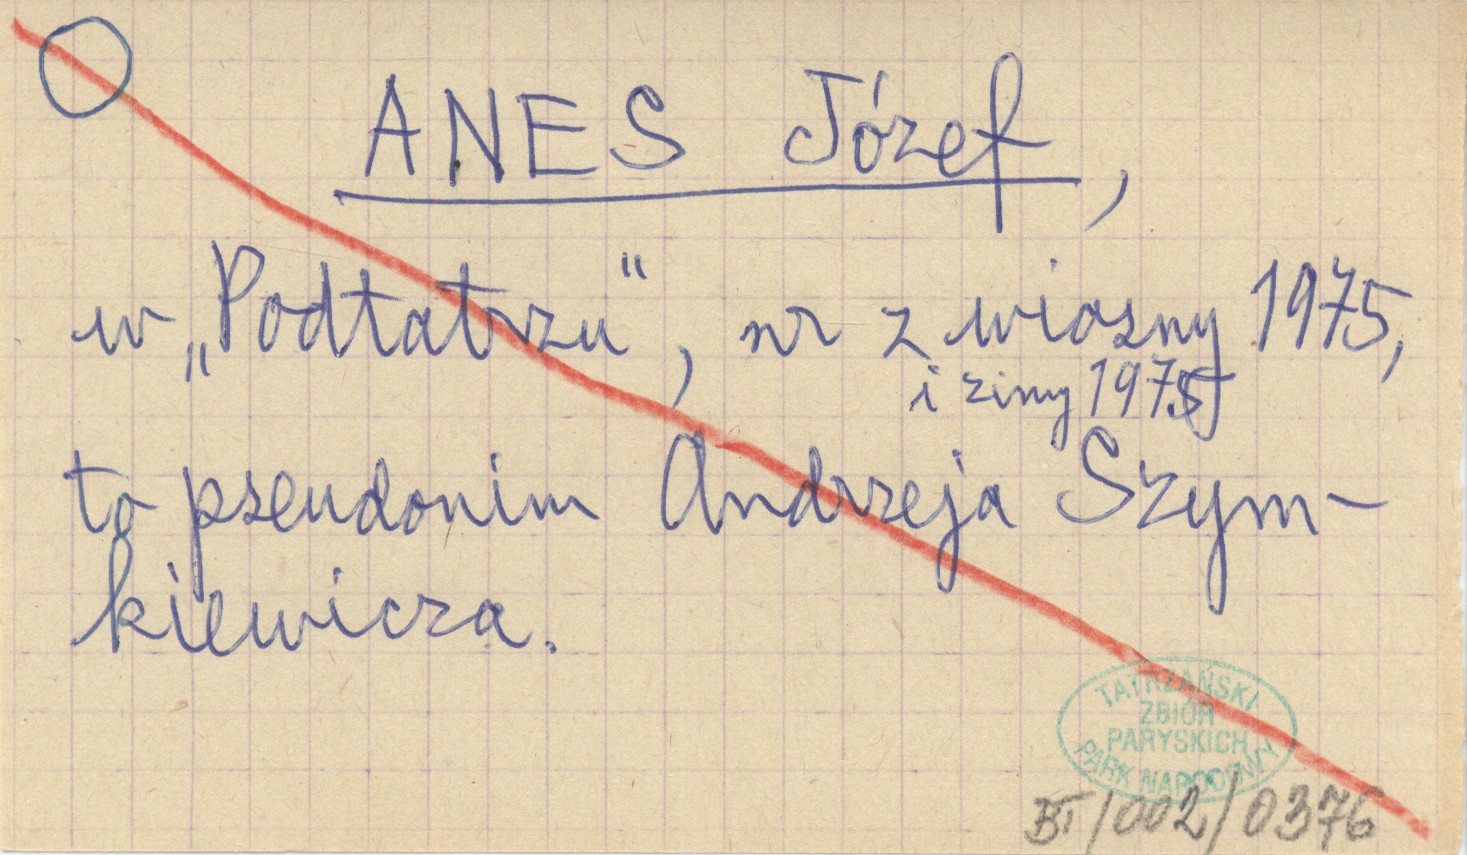 ANES Józef,
w „Podtatrzu“, nr z wiosny 1975,
i zimy 1975
to pseudonim Andrzeja Szym-
kiewicza.
TATRZAŃSKI
ZBIÓR
PARYSKICH
PARK NARODOWY
BT/002/0376